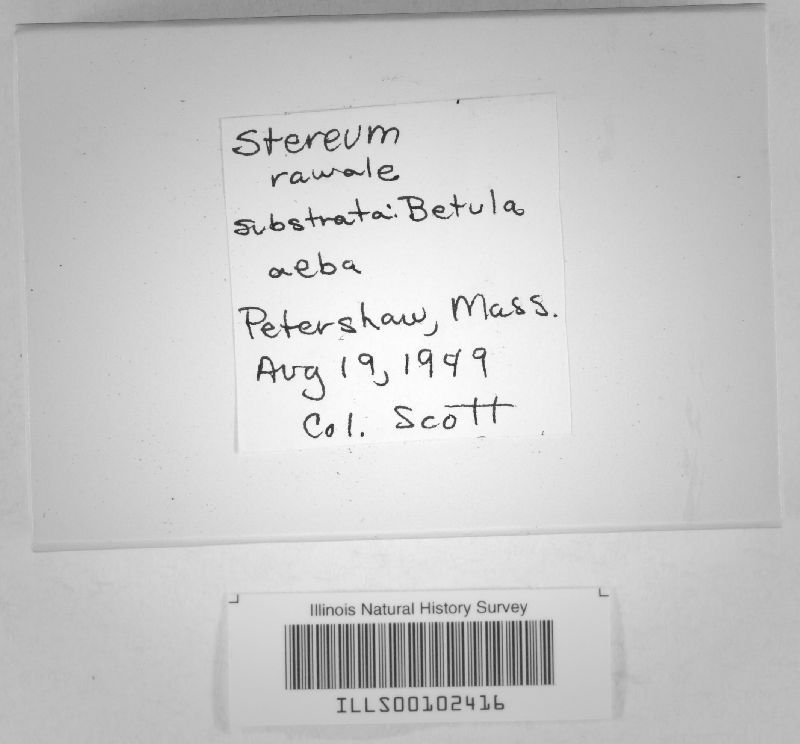 Stereum
rawale
substrata: Betula
aeba
Petershaw, Mass.
Aug 19, 1949
Col. Scott
Illinois Natural History Survey
ILLS00102416